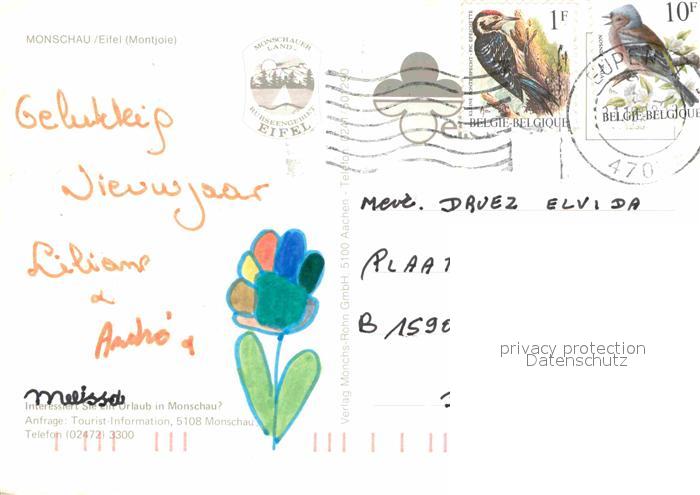 MONSCHAU /Eifel (Montjoie)
MONSCHAUER
LAND-
RURSEENGEBIET
EIFEL
1F
KLEINE BONTE SPECHT - PIC EPEICHETTE
BELGIË-BELGIQUE
10F
BELGIË-BELGIQUE
EUPEN
470
Gelukkig
Nieuwjaar
Liliane
&
André &
Melissa
Mevr. DRUEZ ELVIDA
PLAAT
B 159
privacy protection
Datenschutz
Interessiert Sie ein Urlaub in Monschau?
Anfrage: Tourist-Information, 5108 Monschau,
Telefon (02472) 3300
Verlag Monchs-Rohn GmbH, 5100 Aachen - Telefon